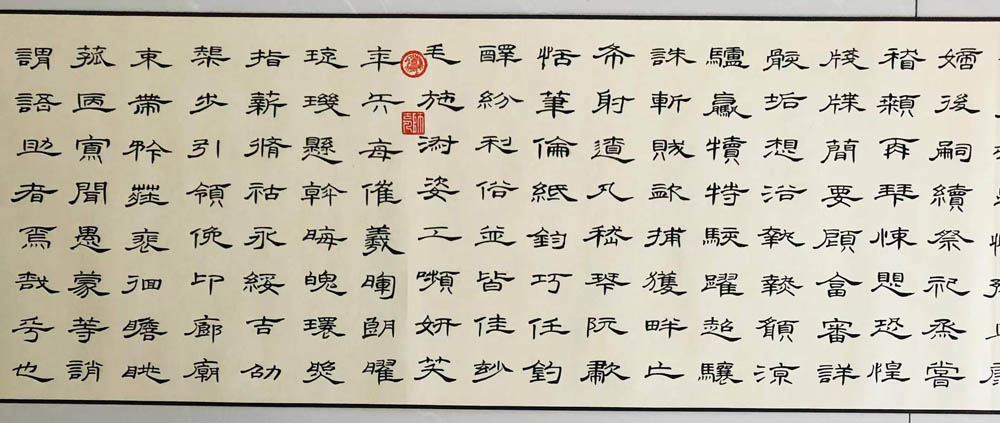 嫡後嗣續祭祀烝嘗
稽顙再拜悚愳恐惶
牋牒簡要顧畣審詳
骸垢想浴執熱願涼
驢驘犢特駭躍超驤
誅斬賊盜捕獲畔亡
布射遼丸嵇琴阮歗
恬筆倫紙鈞巧任釣
醳紛利俗並皆佳玅
毛施淑姿工嚬妍笑
年矢每催羲暉朗曜
琁璣懸斡晦魄環照
指薪脩祜永綏吉劭
榘步引領俛卬廊廟
束帶矜莊裵徊瞻眺
孤陋寡聞愚蒙等誚
謂語助者焉哉乎也